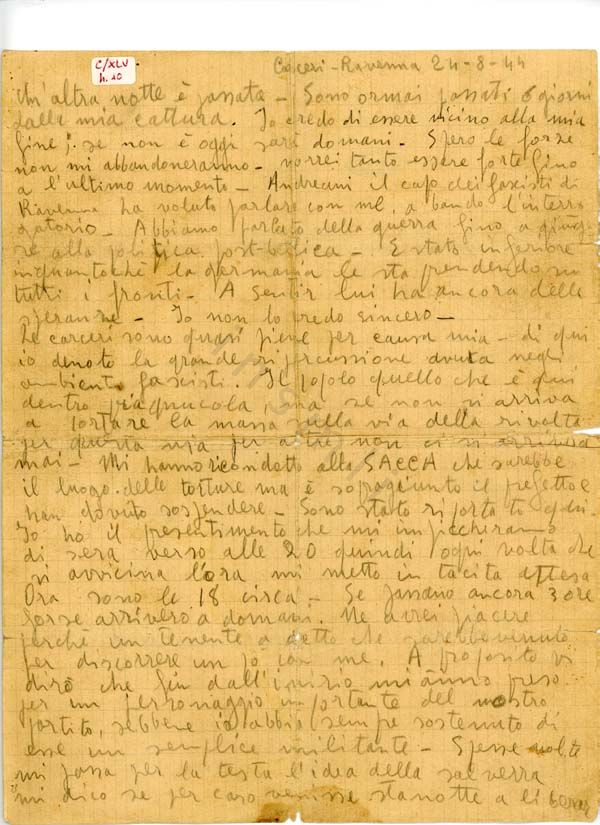 C/XLV
h. 10
Carceri - Ravenna 24-8-44
Un'altra notte è passata - Sono ormai passati 6 giorni
dalla mia cattura. Io credo di essere vicino alla mia
fine; se non è oggi sarà domani - Spero le forze
non mi abbandoneranno - vorrei tanto essere forte fino
a l'ultimo momento - Andreani il capo dei fascisti di
Ravenna ha voluto parlare con me, a bando l'interro
gatorio - Abbiamo parlato della guerra fino a giunge
re alla politica post-bellica - E stato inferiore
inquantoché la germania le sta prendendo su
tutti i fronti - A sentir lui ha ancora delle
speranze - Io non lo credo sincero -
Le carceri sono quasi piene per causa mia - di qui
io denoto la grande ripercussione avuta negli
ambienti fascisti. Il popolo quello che è qui
dentro piagnucola, ma se non si arriva
a portare la massa sulla via della rivolta
per questa via per altre non ci si arriverà
mai - Mi hanno ricondotto alla SACCA che sarebbe
il luogo delle torture ma è sopragiunto il prefetto e
han dovuto sospendere - Sono stato riportato qui -
Io hò il presentimento che mi impiccheranno
di sera verso alle 20 quindi ogni volta che
si avvicina l'ora mi metto in tacita attesa
Ora sono le 18 circa - Se passano ancora 3 ore
forse arriverò a domani. Ne avrei piacere
perché un tenente a detto che sarebbe venuto
per discorrere un pò con me. A proposito vi
dirò che fin dall'inizio mi ànno preso
per un personaggio importante del nostro
partito, sebbene io abbia sempre sostenuto di
esse un semplice militante - Spesse volte
mi passa per la testa l'idea della salvezza
mi dico se per caso venisse stanotte a liberar